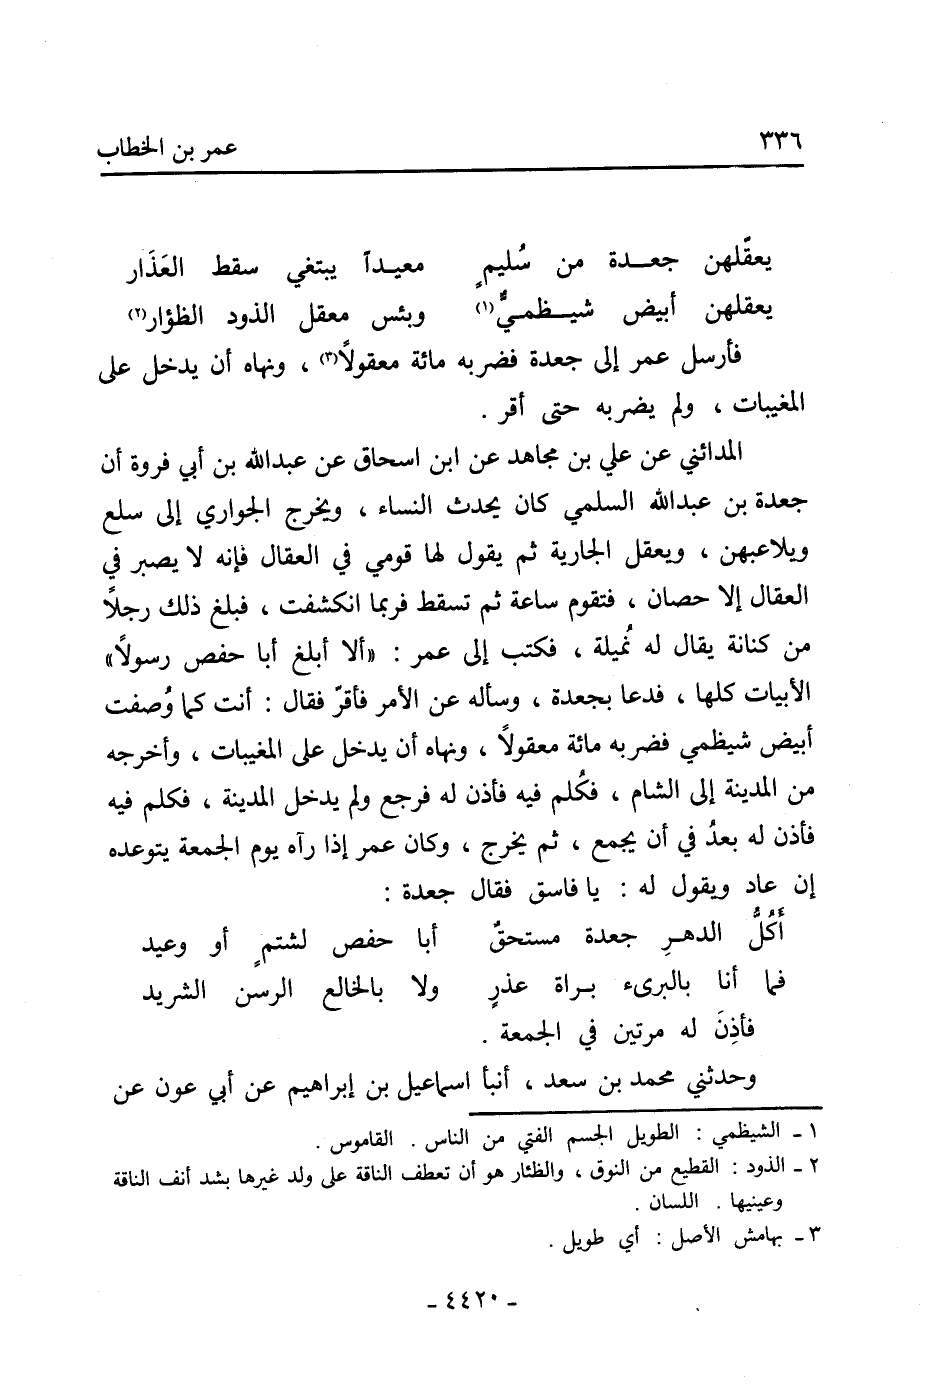 ٣٣٦
عمر بن الخطاب
يعقّلهن جعـــدة من سُليمٍ معيـداً يبتغي سقط العَذَار
يعقلهن أبيض شيـــظمـيٌّ(١) وبئس معقل الذود الظؤار(٢)
فأرسل عمر إلى جعدة فضربه مائة معقولاً(٣) ، ونهاه أن يدخل على
المغيبات ، ولم يضربه حتى أقر .
المدائني عن علي بن مجاهد عن ابن اسحاق عن عبدالله بن أبي فروة أن
جعدة بن عبدالله السلمي كان يحدث النساء ، ويخرج الجواري إلى سلع
ويلاعبهن ، ويعقل الجارية ثم يقول لها قومي في العقال فإنه لا يصبر في
العقال إلا حصان ، فتقوم ساعة ثم تسقط فربما انكشفت ، فبلغ ذلك رجلاً
من كنانة يقال له نُميلة ، فكتب إلى عمر : «ألا أبلغ أبا حفص رسولاً»
الأبيات كلها ، فدعا بجعدة ، وسأله عن الأمر فأقرّ فقال : أنت كما وُصفت
أبيض شيظمي فضربه مائة معقولاً ، ونهاه أن يدخل على المغيبات ، وأخرجه
من المدينة إلى الشام ، فكُلم فيه فأذن له فرجع ولم يدخل المدينة ، فكلم فيه
فأذن له بعدُ في أن يجمع ، ثم يخرج ، وكان عمر إذا رآه يوم الجمعة يتوعده
إن عاد ويقول له : يا فاسق فقال جعدة :
أَكُلُّ الدهـرِ جعدة مستحقٌ أبا حفص لشتمٍ أو وعيد
فما أنا بالبرىء بـراة عذرٍ ولا بالخالع الرسن الشريد
فأذِنَ له مرتين في الجمعة .
وحدثني محمد بن سعد ، أنبأ اسماعيل بن إبراهيم عن أبي عون عن
١ ـ الشيظمي : الطويل الجسم الفتي من الناس . القاموس .
٢ ـ الذود : القطيع من النوق ، والظئار هو أن تعطف الناقة على ولد غيرها بشد أنف الناقة
وعينيها . اللسان .
٣ ـ بهامش الأصل : أي طويل .
ـ ٤٤٢٠ ـ